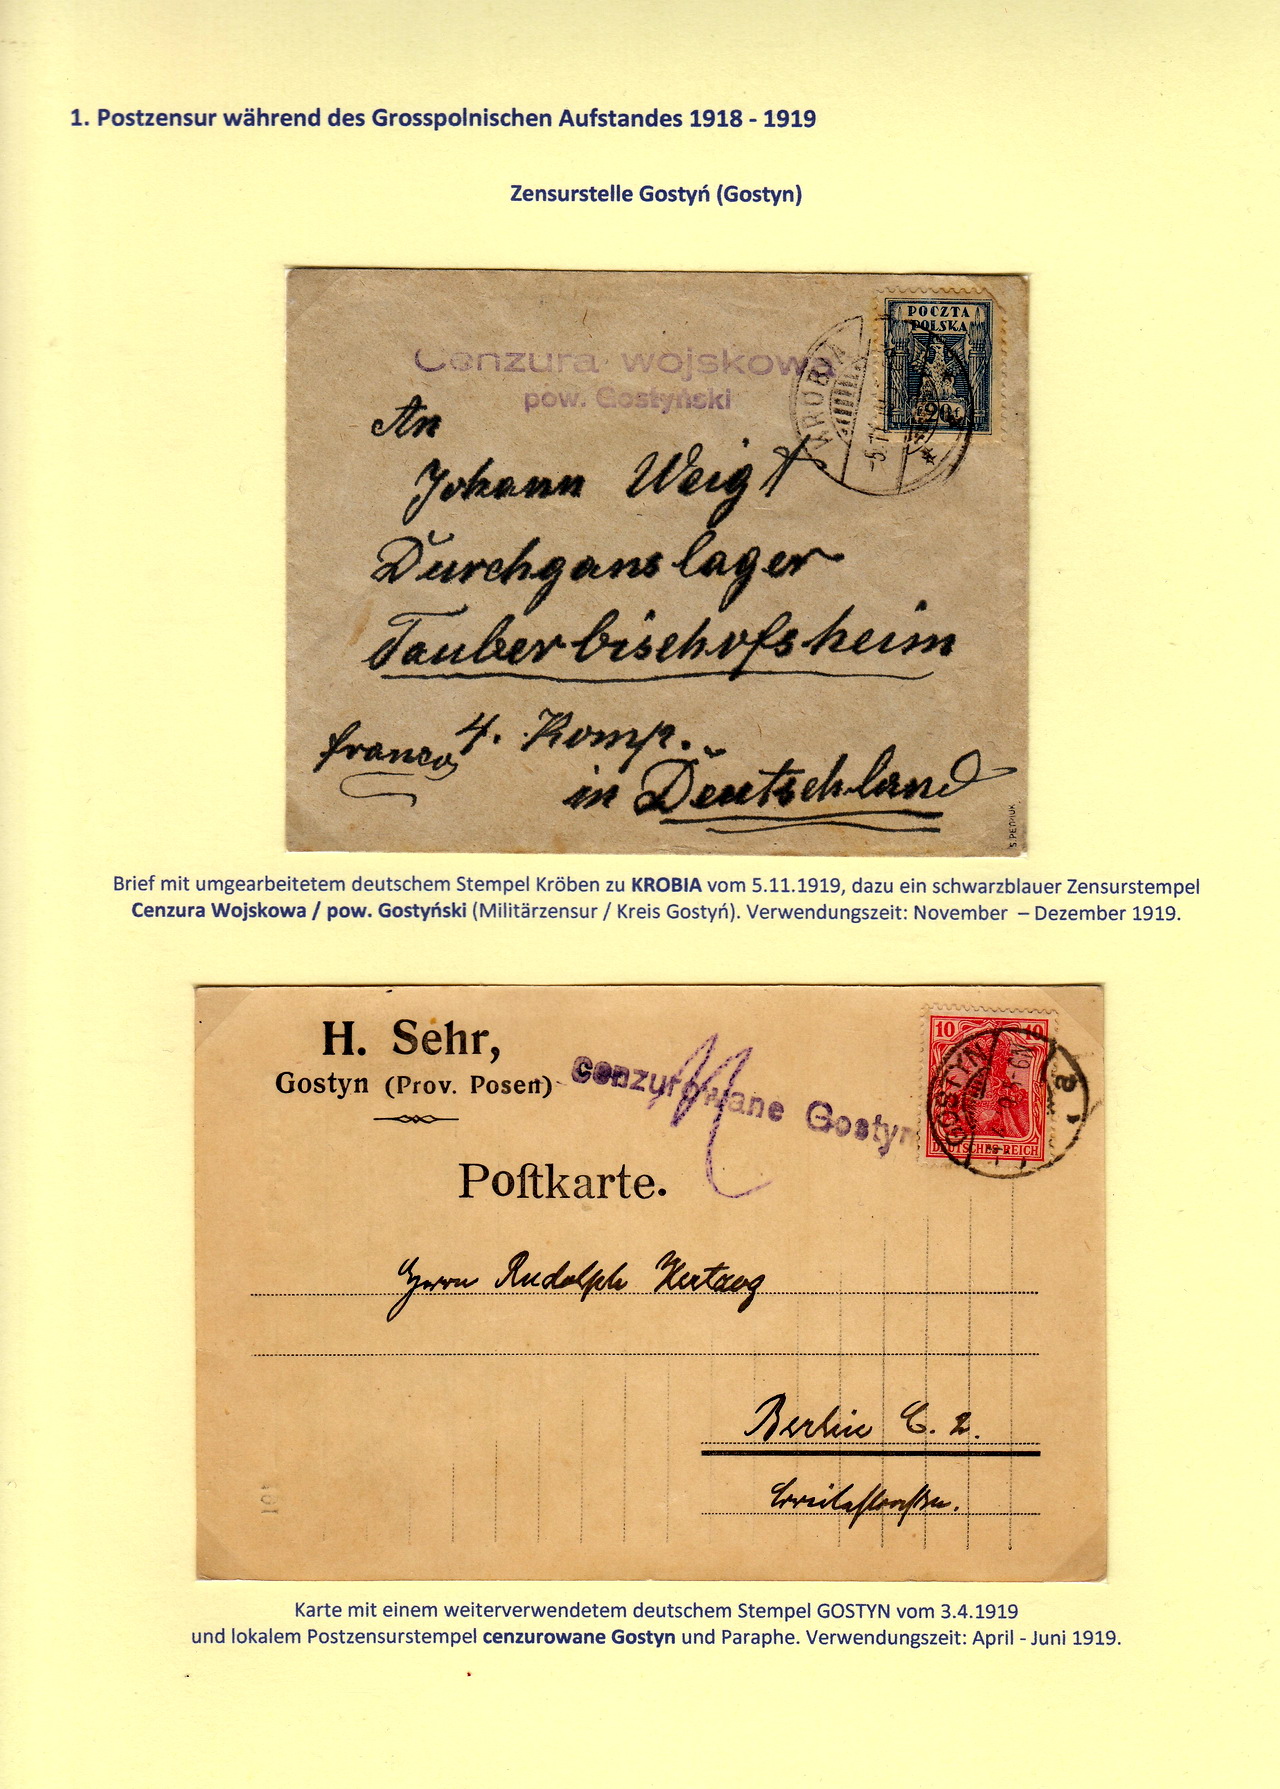 1. Postzensur während des Grosspolnischen Aufstandes 1918 - 1919
Zensurstelle Gostyń (Gostyn)
POCZTA
POLSKA
20 f
KROBIA
-5.11.
Cenzura wojskowa
pow. Gostyński
An
Johann Weigt
Durchganslager
Tauberbischofsheim
4. Komp.
franco
in Deutschland
S.PETRIUK
Brief mit umgearbeitetem deutschem Stempel Kröben zu KROBIA vom 5.11.1919, dazu ein schwarzblauer Zensurstempel
Cenzura Wojskowa / pow. Gostyński (Militärzensur / Kreis Gostyń). Verwendungszeit: November – Dezember 1919.
H. Sehr,
Gostyn (Prov. Posen)
cenzurowane Gostyn
10 10
DEUTSCHES REICH
GOSTYN
a
Poſtkarte.
Herrn Rudolph Hertzog
Berlin C. 2.
Breitestraße.
101
Karte mit einem weiterverwendetem deutschem Stempel GOSTYN vom 3.4.1919
und lokalem Postzensurstempel cenzurowane Gostyn und Paraphe. Verwendungszeit: April - Juni 1919.